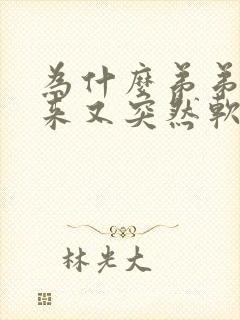 為什麼弟弟
来又突然軟
林光大